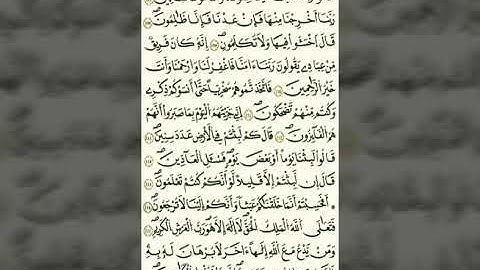 رَبَّنَا أَخْرِجْنَا مِنْهَا فَإِنْ عُدْنَا فَإِنَّا ظَالِمُونَ ۝١٠٧
قَالَ اخْسَئُوا فِيهَا وَلَا تُكَلِّمُونِ ۝١٠٨ إِنَّهُ كَانَ فَرِيقٌ
مِنْ عِبَادِي يَقُولُونَ رَبَّنَا آمَنَّا فَاغْفِرْ لَنَا وَارْحَمْنَا وَأَنْتَ
خَيْرُ الرَّاحِمِينَ ۝١٠٩ فَاتَّخَذْتُمُوهُمْ سِخْرِيًّا حَتَّى أَنْسَوْكُمْ ذِكْرِي
وَكُنْتُمْ مِنْهُمْ تَضْحَكُونَ ۝١١٠ إِنِّي جَزَيْتُهُمُ الْيَوْمَ بِمَا صَبَرُوا أَنَّهُمْ
هُمُ الْفَائِزُونَ ۝١١١ قَالَ كَمْ لَبِثْتُمْ فِي الْأَرْضِ عَدَدَ سِنِينَ ۝١١٢
قَالُوا لَبِثْنَا يَوْمًا أَوْ بَعْضَ يَوْمٍ فَسْئَلِ الْعَادِّينَ ۝١١٣
قَالَ إِنْ لَبِثْتُمْ إِلَّا قَلِيلًا لَوْ أَنَّكُمْ كُنْتُمْ تَعْلَمُونَ ۝١١٤
أَفَحَسِبْتُمْ أَنَّمَا خَلَقْنَاكُمْ عَبَثًا وَأَنَّكُمْ إِلَيْنَا لَا تُرْجَعُونَ ۝١١٥
فَتَعَالَى اللَّهُ الْمَلِكُ الْحَقُّ لَا إِلَهَ إِلَّا هُوَ رَبُّ الْعَرْشِ الْكَرِيمِ ۝١١٦
وَمَنْ يَدْعُ مَعَ اللَّهِ إِلَهًا آخَرَ لَا بُرْهَانَ لَهُ بِهِ